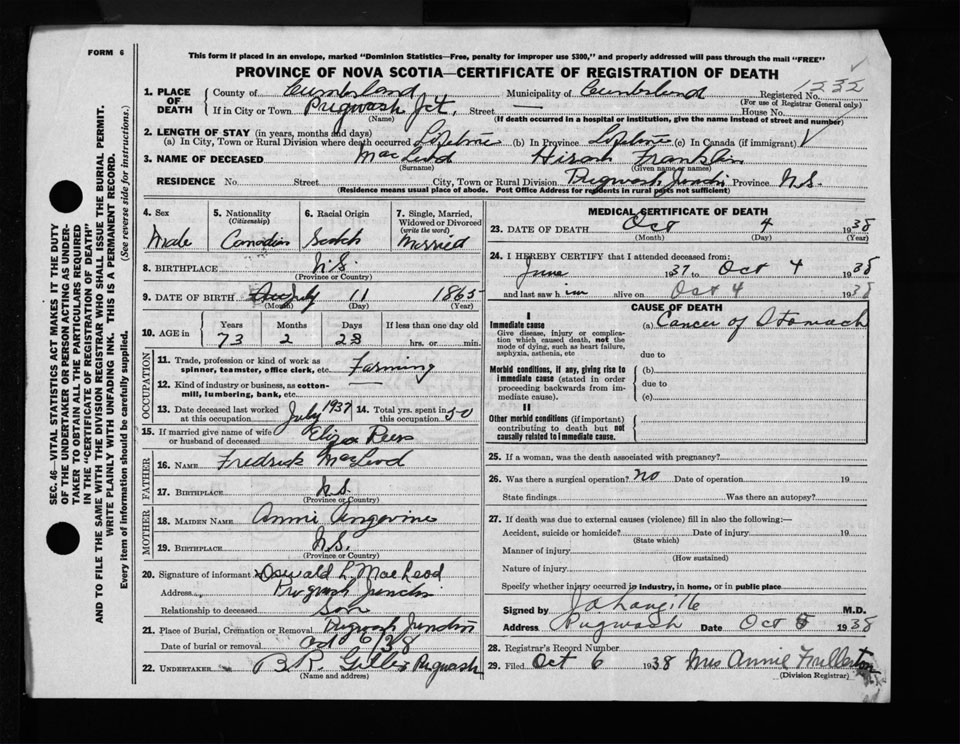 FORM 6
This form if placed in an envelope, marked "Dominion Statistics—Free, penalty for improper use $300," and properly addressed will pass through the mail "FREE"
PROVINCE OF NOVA SCOTIA—CERTIFICATE OF REGISTRATION OF DEATH
1. PLACE OF DEATH County of Cumberland Municipality of Cumberland Registered No. 1232
(For use of Registrar General only)
If in City or Town Pugwash Jct, Street — House No.
(Name) (If death occurred in a hospital or institution, give the name instead of street and number)
2. LENGTH OF STAY (in years, months and days)
(a) In City, Town or Rural Division where death occurred Lifetime (b) In Province Lifetime (c) In Canada (if immigrant)
3. NAME OF DECEASED MacLeod Franklin
(Surname) (Given name or names)
RESIDENCE No. Street City, Town or Rural Division Pugwash Junctin Province N.S.
(Residence means usual place of abode. Post Office Address for residents in rural parts not sufficient)
4. Sex Male
5. Nationality (Citizenship) Canadian
6. Racial Origin Scotch
7. Single, Married, Widowed or Divorced (write the word) Married
8. BIRTHPLACE N.S.
(Province or Country)
9. DATE OF BIRTH July 11 1865
(Month) (Day) (Year)
10. AGE in Years Months Days If less than one day old
73 2 23 hrs. or min.
OCCUPATION
11. Trade, profession or kind of work as spinner, teamster, office clerk, etc. Farming
12. Kind of industry or business, as cotton-mill, lumbering, bank, etc. —
13. Date deceased last worked at this occupation July 1937 14. Total yrs. spent in this occupation 50
15. If married give name of wife or husband of deceased Eliza
FATHER
16. NAME Fredrick MacLeod
17. BIRTHPLACE N.S.
(Province or Country)
MOTHER
18. MAIDEN NAME Annie Angevine
19. BIRTHPLACE N.S.
(Province or Country)
20. Signature of informant Oswald L MacLeod
Address Pugwash Junctin
Relationship to deceased Son
21. Place of Burial, Cremation or Removal Pugwash Junctin
Date of burial or removal Oct 6/38
22. UNDERTAKER B.R. Gillis Pugwash
(Name and address)
MEDICAL CERTIFICATE OF DEATH
23. DATE OF DEATH Oct 4 1938
(Month) (Day) (Year)
24. I HEREBY CERTIFY that I attended deceased from:
June 1937 to Oct 4 1938
and last saw him alive on Oct 4 1938
CAUSE OF DEATH
I
Immediate cause (a) Cancer of Stomach
Give disease, injury or complication which caused death, not the mode of dying, such as heart failure, asphyxia, asthenia, etc
due to
Morbid conditions, if any, giving rise to immediate cause (stated in order proceeding backwards from immediate cause).
(b)
due to
(c)
II
Other morbid conditions (if important) contributing to death but not causally related to immediate cause.
25. If a woman, was the death associated with pregnancy?
26. Was there a surgical operation? no Date of operation 19
State findings Was there an autopsy?
27. If death was due to external causes (violence) fill in also the following:—
Accident, suicide or homicide? Date of injury 19
(State which)
Manner of injury
(How sustained)
Nature of injury
Specify whether injury occurred in industry, in home, or in public place
Signed by M.D.
Address Pugwash Date Oct 1938
28. Registrar's Record Number
29. Filed Oct 6 1938 Mrs Annie Fullerton
(Division Registrar)
SEC. 46—VITAL STATISTICS ACT MAKES IT THE DUTY
OF THE UNDERTAKER OR PERSON ACTING AS UNDER-
TAKER TO OBTAIN ALL THE PARTICULARS REQUIRED
IN THE "CERTIFICATE OF REGISTRATION OF DEATH"
AND TO FILE THE SAME WITH THE DIVISION REGISTRAR WHO SHALL ISSUE THE BURIAL PERMIT.
WRITE PLAINLY WITH UNFADING INK. THIS IS A PERMANENT RECORD.
Every item of information should be carefully supplied. (See reverse side for instructions.)